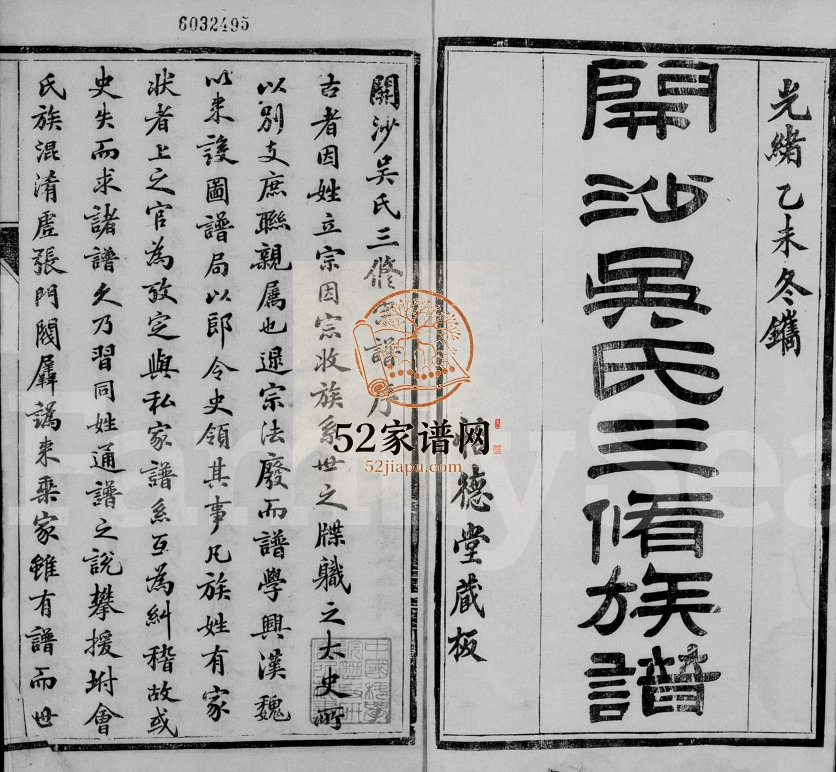 6032495
光緒乙未冬鐫
開沙吳氏三脩族譜
德堂藏板
開沙吳氏三修宗譜序
古者因姓立宗因宗收族系世之牒職之太史所
以別支庶聯親屬也逞宗法廢而譜學興漢魏
以來設圖譜局以郎令史領其事凡族姓有家
狀者上之官為攷定與私家譜系互為糾稽故或
史失而求諸譜久乃習同姓通譜之說攀援坿會
氏族混淆虛張門閥羼譌來葉家雖有譜而世
52家谱网
52jiapu.com